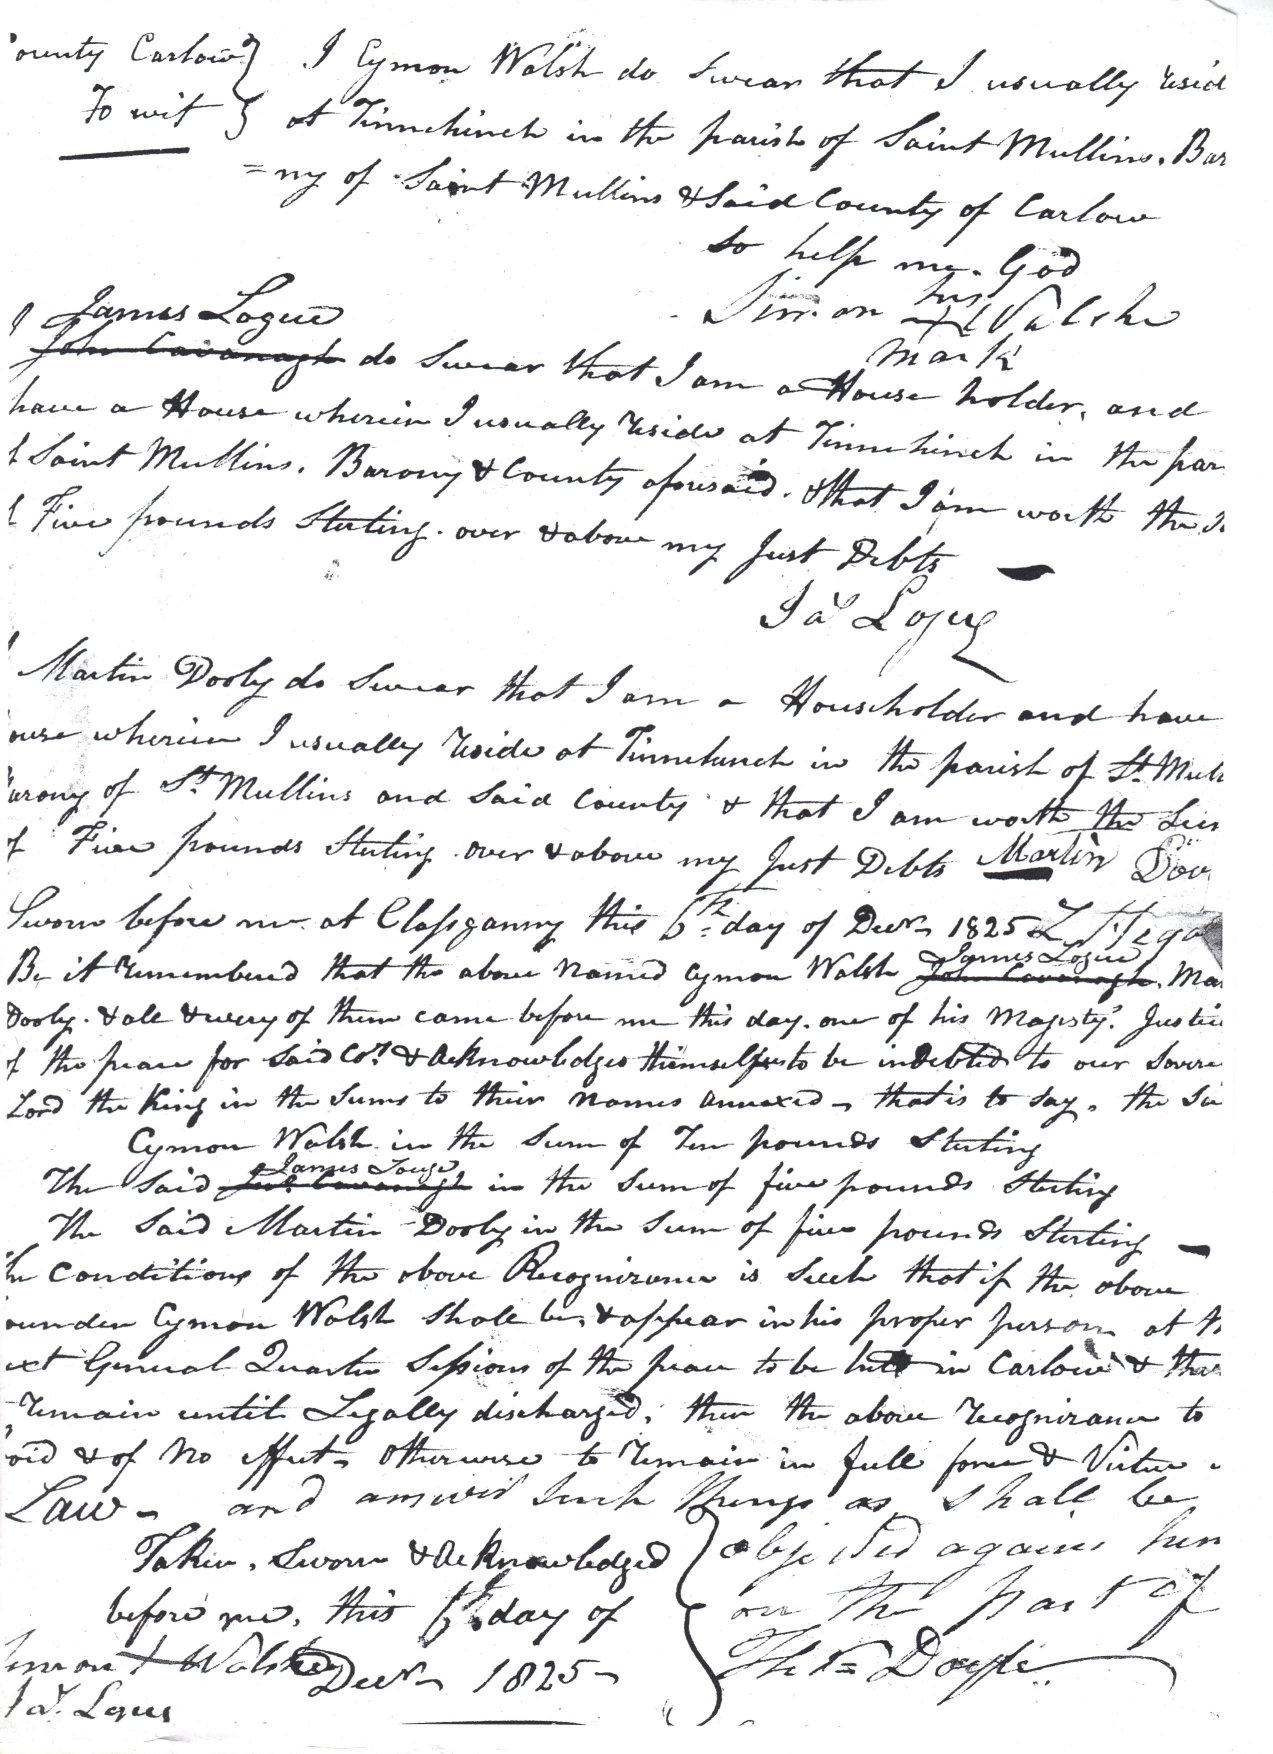 ounty Carlow } I Cymon Walsh do Swear that I usually resid
To wit } at Tinnehinch in the parish of Saint Mullins. Bar
=ny of Saint Mullins & Said County of Carlow
So help me God
Simon his X Walshe
mark
I James Logue
John Cavanagh do Swear that I am a House holder, and
have a House wherein I usually reside at Tinnehinch in the par
f Saint Mullins. Barony & County aforesaid. & that I am worth the S
f Five pounds Sterling. over & above my Just Debts
Jas Logue
I Martin Dooly do Swear that I am a Householder and have
ouse wherein I usually reside at Tinnehinch in the parish of St. Mull
arony of St. Mullins and Said County & that I am worth the Sum
of Five pounds Sterling. over & above my Just Debts Martin Doo
Sworn before me at Classganny this 6th day of Decr. 1825
James Logue
Be it remembered that the above Named Cymon Walsh John Cavanagh. Mar
Dooly. & all & every of them came before me this day. one of his Majesty's Justic
of the peace for Said Coy. & acknowledged themselves to be indebted to our Sovere
Lord the King in the Sums to their Names annexed - that is to Say, the Sa
Cymon Walsh in the Sum of Ten pounds Sterling
James Louge
The Said Jno. Cavanagh in the Sum of five pounds Sterling
The Said Martin Dooly in the Sum of five pounds Sterling -
The Conditions of the above Recognizance is Such that if the above
ounden Cymon Walsh Shall be, & appear in his proper person at th
ext General Quarter Sessions of the peace to be held in Carlow & ther
remain until Legally discharged, then the above recognizance to
oid & of No effect - Otherwise to remain in full force & Virtue
Law - and answer Such things as Shall be
Taken, Sworn & acknowledged { objected against him
before me, this 6th day of on the part of
Decr. 1825 - Doyle
imon X Walshe
Jas. Logue